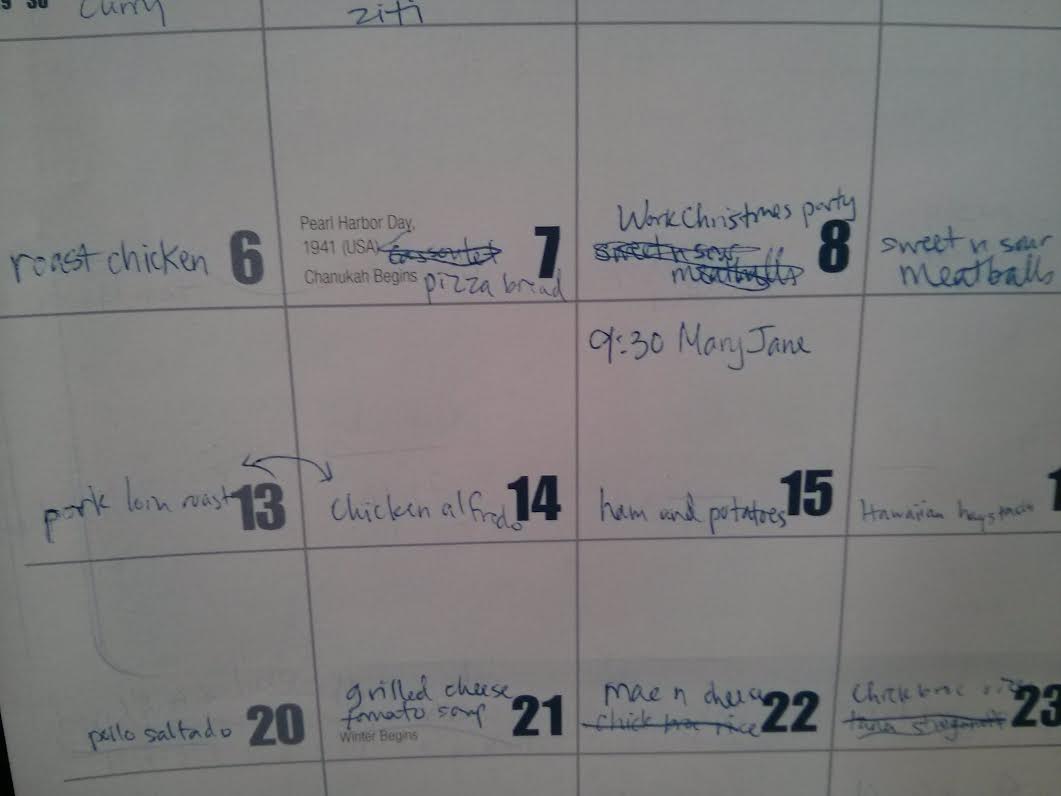 30 curry
ziti
roast chicken 6
Pearl Harbor Day,
1941 (USA)
Chanukah Begins pizza bread
7
Work Christmas party
sweet n sour
meatballs
8
sweet n sour
meatballs
pork loin roast 13
chicken alfredo 14
9:30 Mary Jane
ham and potatoes 15
Hawaiian haystacks
pollo saltado 20
grilled cheese
tomato soup
Winter Begins
21
mac n cheese
chick broc rice
22
chick broc rice
23